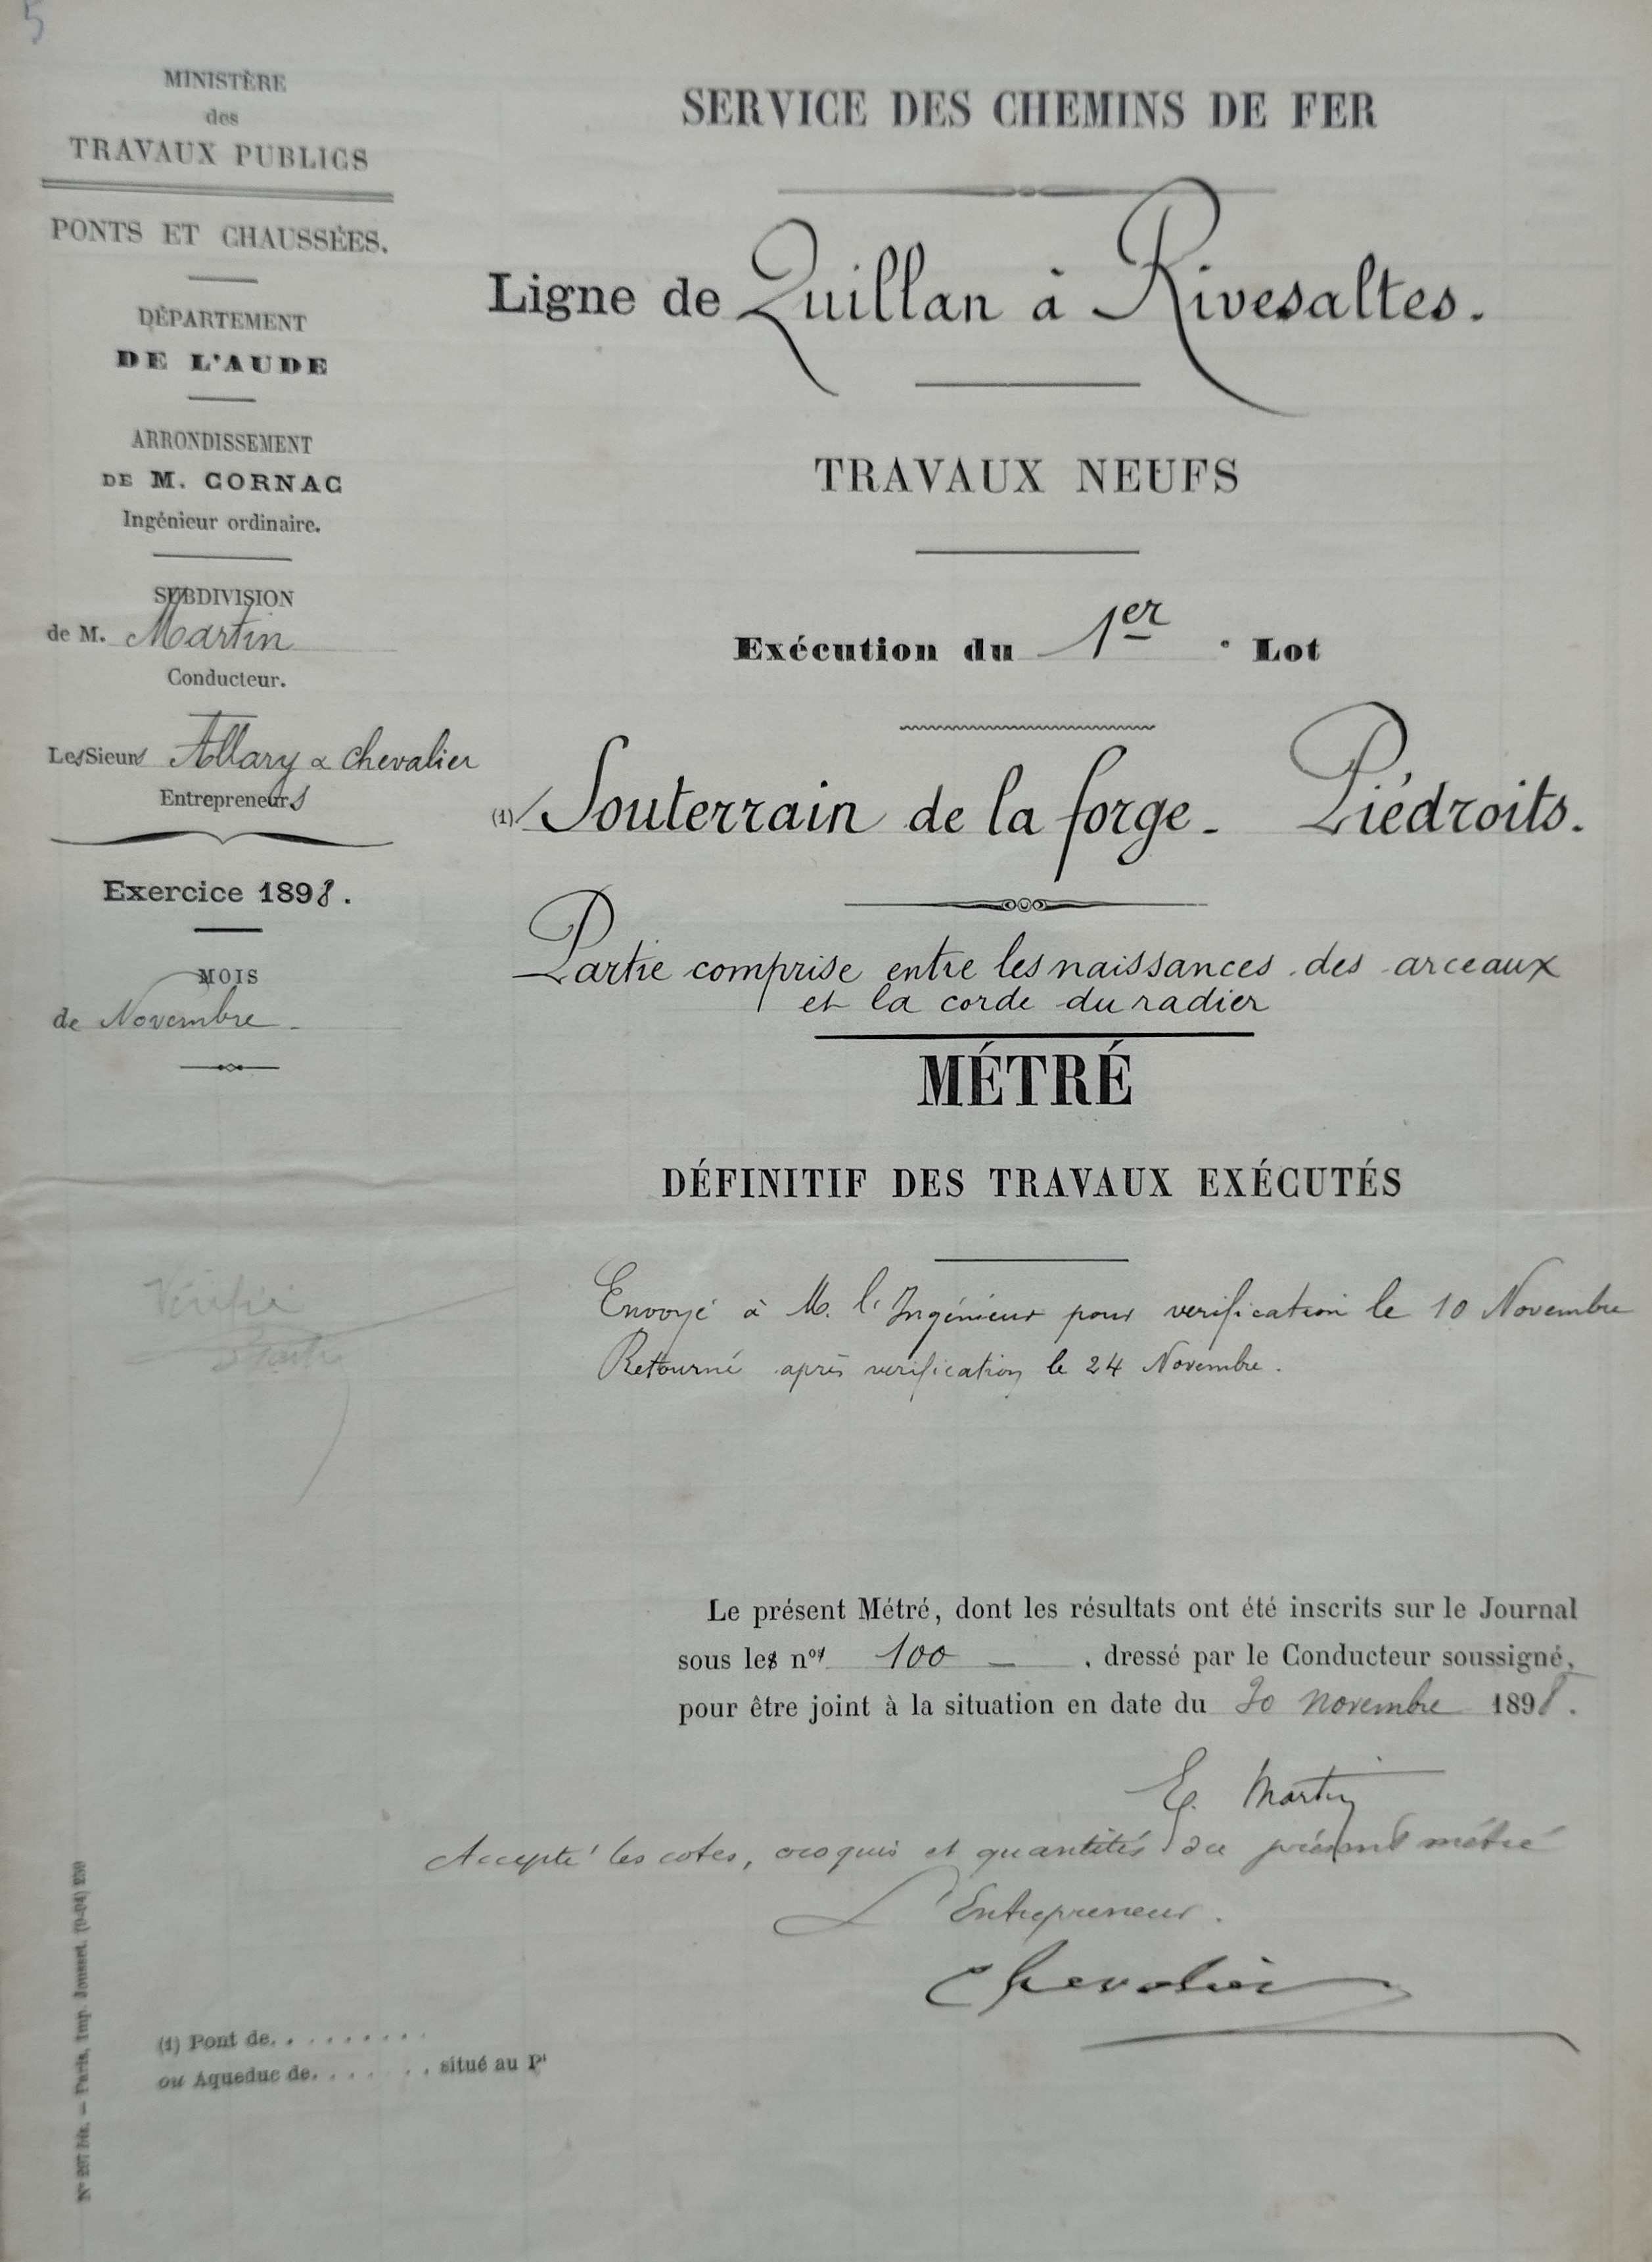 5
MINISTÈRE
des
TRAVAUX PUBLICS
PONTS ET CHAUSSÉES.
DÉPARTEMENT
DE L'AUDE
ARRONDISSEMENT
DE M. CORNAC
Ingénieur ordinaire.
SUBDIVISION
de M. Martin
Conducteur.
Les Sieurs Allary & Chevalier
Entrepreneurs
Exercice 1898.
MOIS
de Novembre
SERVICE DES CHEMINS DE FER
Ligne de Quillan à Rivesaltes.
TRAVAUX NEUFS
Exécution du 1er e Lot
(1) Souterrain de la forge - Piédroits.
Partie comprise entre les naissances des arceaux
et la corde du radier
MÉTRÉ
DÉFINITIF DES TRAVAUX EXÉCUTÉS
Vérifié
Envoyé à M. l'Ingénieur pour verification le 10 Novembre
Retourné après verification le 24 Novembre.
Le présent Métré, dont les résultats ont été inscrits sur le Journal
sous les nos 100 — , dressé par le Conducteur soussigné,
pour être joint à la situation en date du 30 novembre 1898.
E. Martin
Accepté les cotes, croquis et quantités du présent métré
L'Entrepreneur.
Chevalier
(1) Pont de. . . . . . . . .
ou Aqueduc de. . . . . . . situé au Pt
N° 207 bis. — Paris, Imp. Jousset.